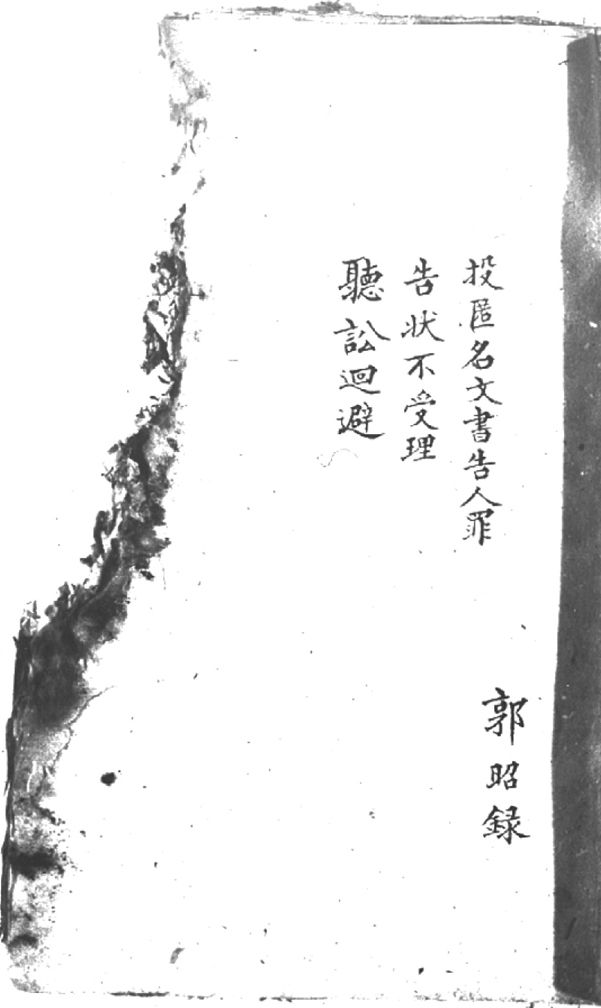 投匿名文書告人罪
告狀不受理
聽訟迴避
郭昭録